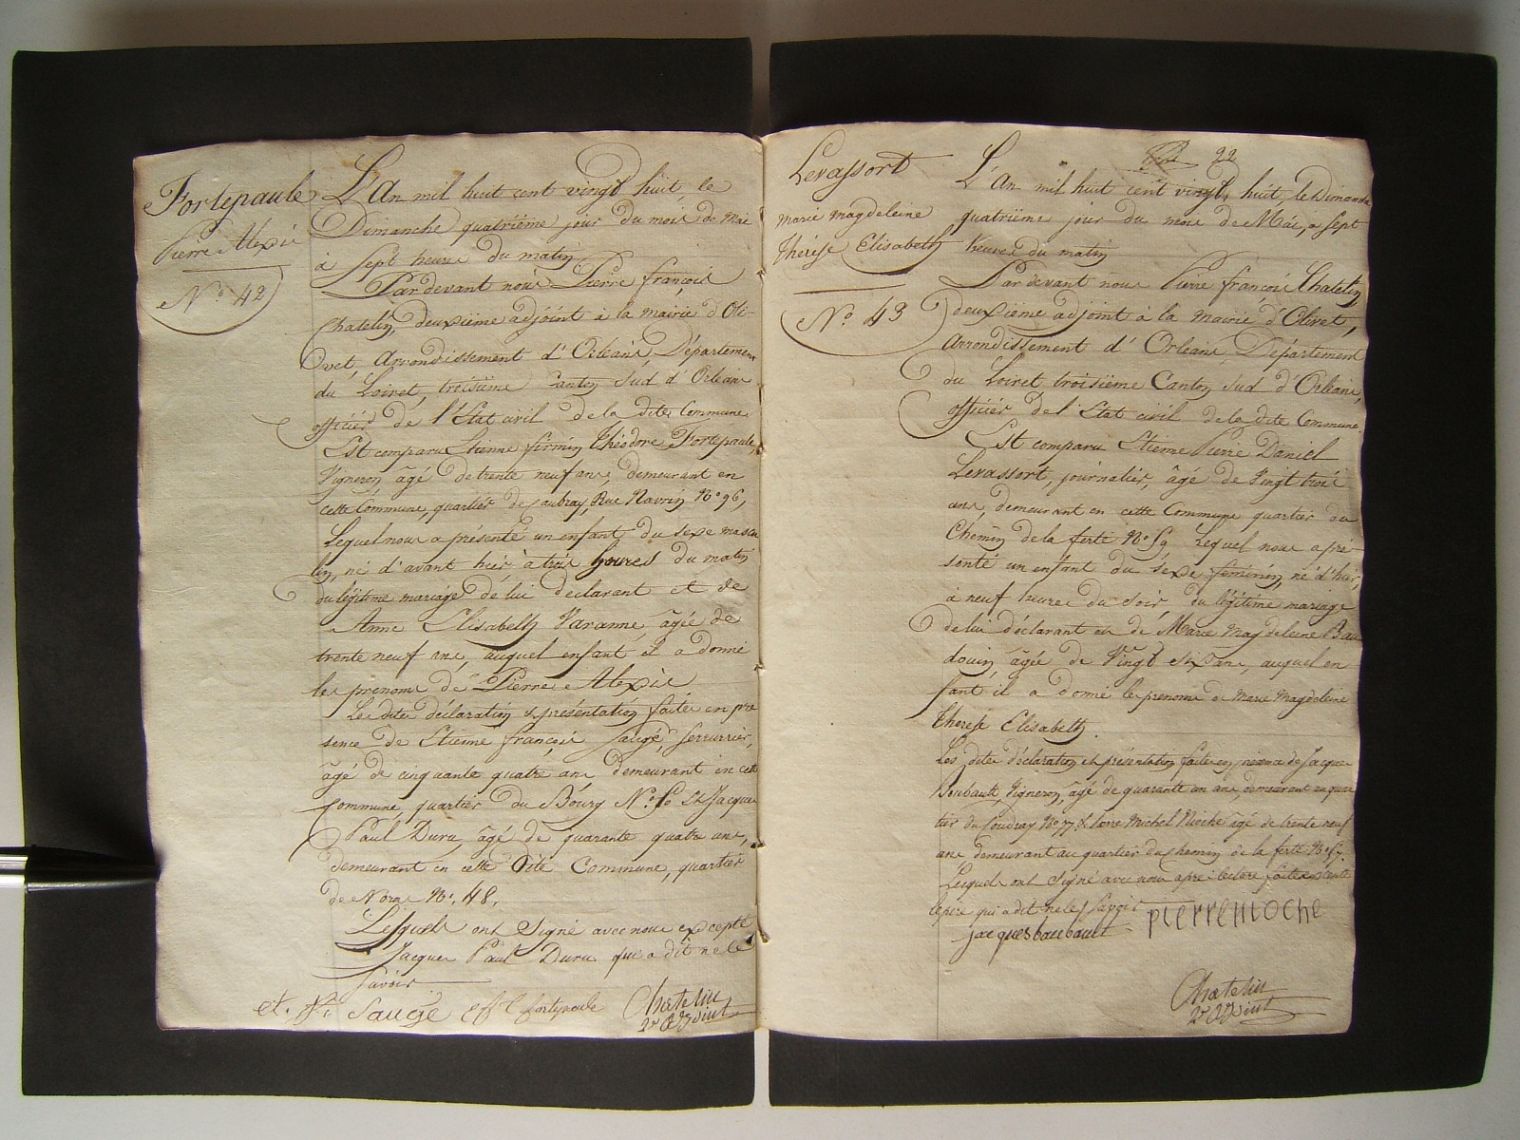 Fortepaule
Pierre Alexis
No. 42
L'An mil huit cent vingt huit le
Dimanche quatriïeme jour du mois de Mai
à Sept heures du matin
Pardevant nous Pierre françois
Chatelin deuxième adjoint à la mairie d'Oli-
vet, Arrondissement d'Orléans, Département
du Loiret, troisiïeme Canton Sud d'Orleans
officier de l'Etat civil de la dite Commune
Est comparu Etienne firmin Théodore Fortepaule,
Vigneron âgé de trente neuf ans, demeurant en
cette Commune, quartier de Rue No 96,
Lequel nous a présenté un enfant du sexe mascu
lin, né d'avant hier à trois heures du matin
du légitime mariage de lui déclarant et de
Anne Elisabeth Varanne âgée de
trente neuf ans, auquel enfant il a donné
les prenoms de Pierre Alexis
Les dites déclaration & présentation faites en pré
sence de Etienne françois Saugé Serrurrier,
âgé de cinquante quatre ans, demeurant en cette
Commune, quartier du Bourg No. & Jacques
Paul Duru, âgé de quarante quatre ans,
demeurant en cette dite Commune, quartier
de No. 48.
Lesquels ont Signé avec nous excepté
Jacques Paul Duru qui a dit ne le
Savoir
et. fr. Saugé Eff t fortepaule Chatelin
2e Adjoint
22
Levassort
Marie magdeleine
thérèse Elisabeth
No. 43
L'An mil huit cent vingt huit, le Dimanche
quatriïeme jour du mois de Mai, a Sept
heures du matin
Pardevant nous Pierre françois Chatelin
deuxïeme adjoint à la Mairie d'Olivet,
Arrondissement d'Orleans, Département
du Loiret troisiïeme Canton Sud d'Orléans,
officier de l'Etat civil de la dite Commune
Est comparu Etienne Pierre Daniel
Levassort, journalier, âgé de Vingt trois
ans, demeurant en cette Commune quartier du
Chemin de la ferté No. 59 Lequel nous a pré-
senté un enfant du sèxe féminin, né d'hier,
à neuf heures du Soir, du légitime mariage
de lui déclarant et de Marie Magdeleine Bau
douin âgée de Vingt six ans, auquel en
fant il a donné les prenoms de Marie Magdeleine
Therese Elisabeth.
Les dites déclaration et présentation faites en présence de Jacques
Boubault, Vigneron, âgé de quarante un ans, demeurant au quar
tier du Coudray No 77 & Pierre Michel Rioché âgé de trente neuf
ans demeurant au quartier du Chemin de la ferté No. 57.
Lesquels ont Signé avec nous après lecture faite excepté
le père qui a dit ne les Savoir
jacques boubault pierre rioche
Chatelin
2e Adjoint